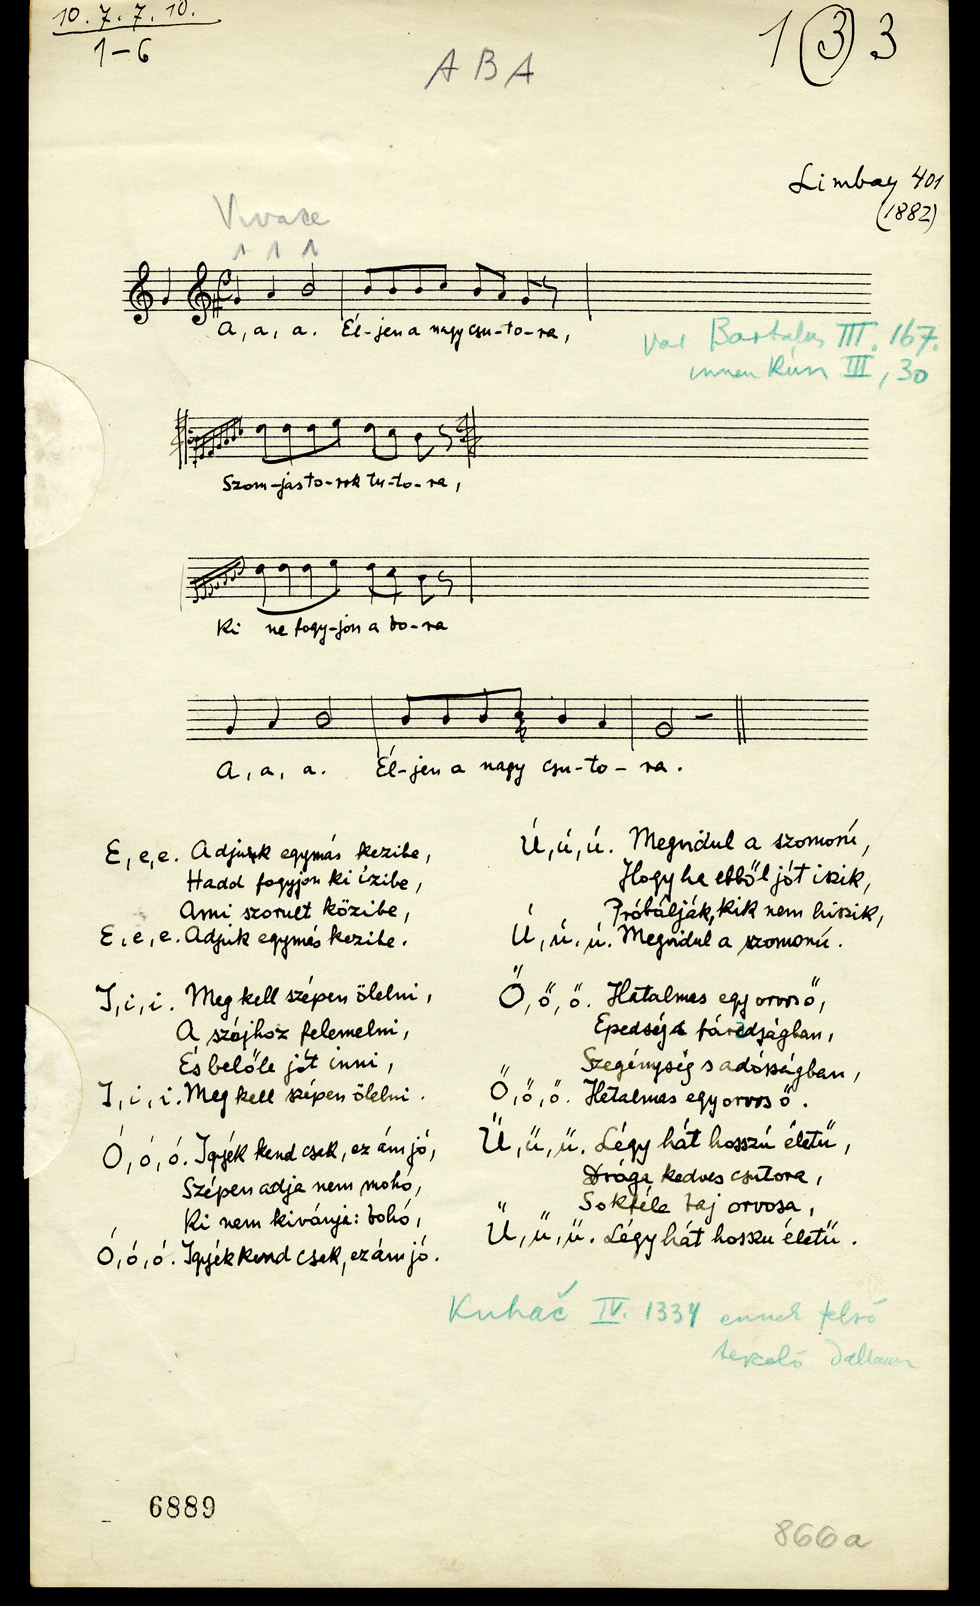 10. 7. 7. 10.
1-6
1 3 3
ABA
Limbay 401
(1882)
Vivace
A, a, a. Él-jen a nagy csu-to-ra,
var Bartalus III. 167.
innen Kún III, 30
Szom-jas to-rok tu-to-ra,
Ki ne fogy-jon a bo-ra
A, a, a. Él-jen a nagy csu-to-ra.
E, e, e. Adjunk egymás kezibe,
Hadd fogyjon ki izibe,
Ami szorult közibe,
E, e, e. Adjuk egymás kezibe.
I, i, i. Meg kell szépen ölelni,
A szájhoz felemelni,
És belőle jót inni,
I, i, i. Meg kell szépen ölelni.
Ó, ó, ó. Igyék kend csak, ez ám jó,
Szépen adja nem mohó,
Ki nem kivánja: bohó,
Ó, ó, ó. Igyék kend csak, ez ám jó.
Ú, ú, ú. Megvidul a szomorú,
Hogy ha ebből jót iszik,
Próbálják, kik nem hiszik,
Ú, ú, ú. Megvidul a szomorú.
Ő, ő, ő. Hatalmas egy orvos ő,
Epedség fáradságban,
Szegénység s adósságban,
Ő, ő, ő. Hatalmas egy orvos ő.
Ű, ű, ű. Légy hát hosszú életű,
Drága kedves csutora,
Sokféle baj orvosa,
Ű, ű, ű. Légy hát hosszu életű.
Kuhač IV. 1334 ennek felső
dallam
6889
866a